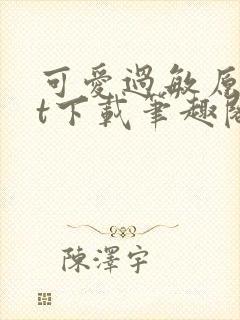 可愛過敏原
t下載筆趣閣
陳澤宇